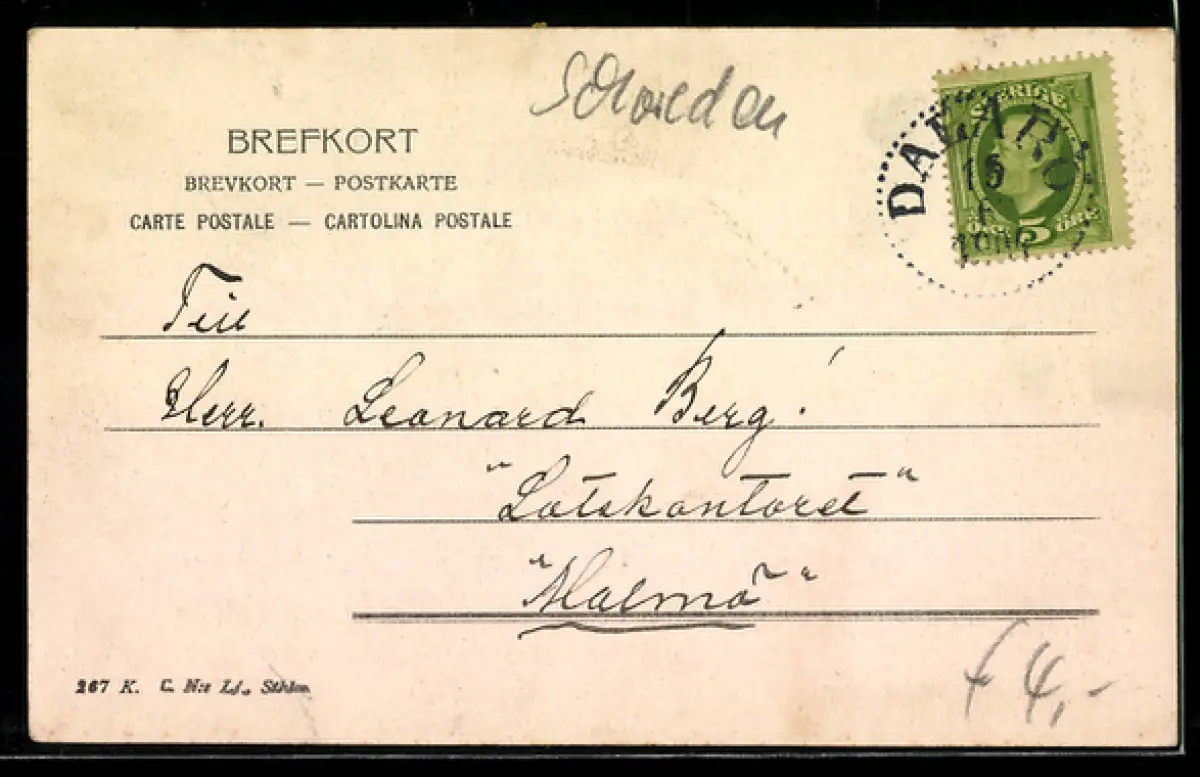 BREFKORT
BREVKORT — POSTKARTE
CARTE POSTALE — CARTOLINA POSTALE
SVERIGE
DALARÖ
ÖRE 5 ÖRE
Till
Herr. Leonard Berg!
"Lotskontoret"
"Malmö"
267 K. C. N:s Lj., Sthlm.
f 4,-